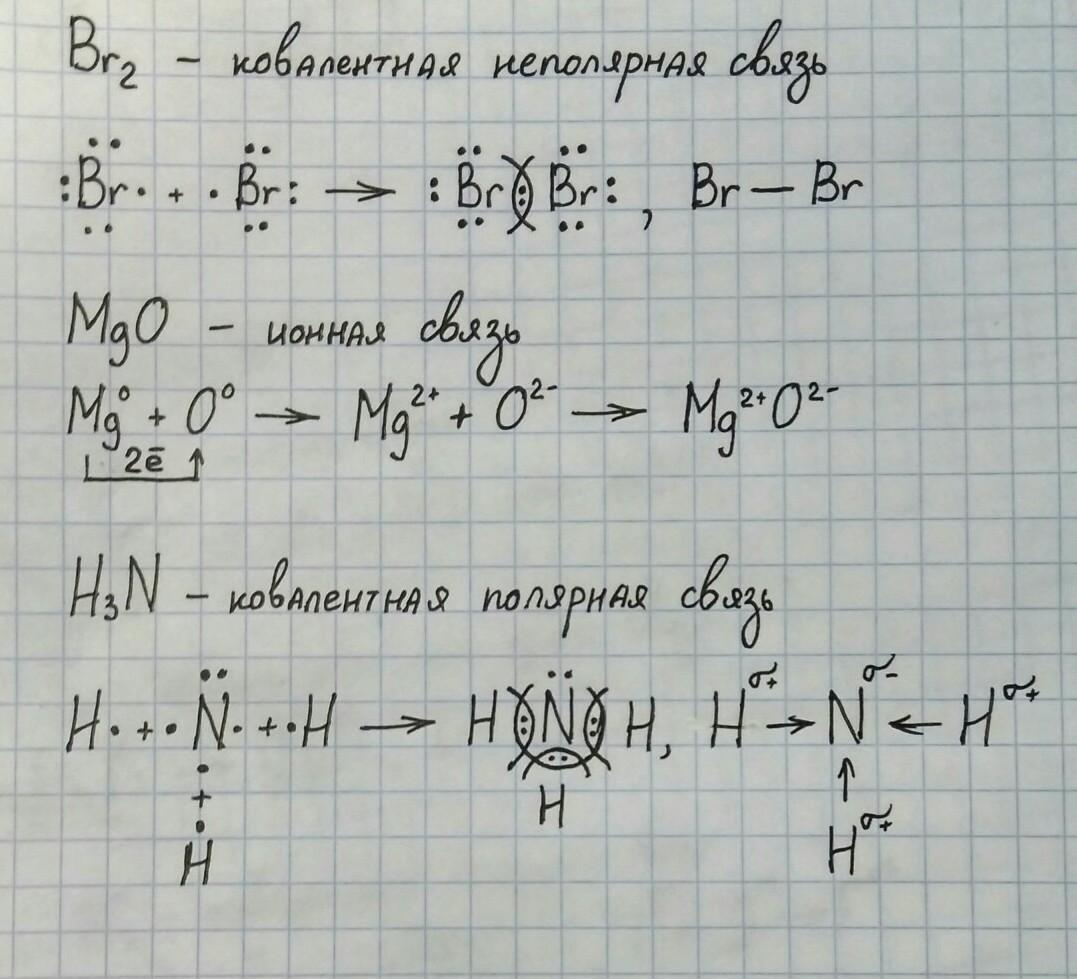 Br₂ – ковалентная неполярная связь
:Br· + ·Br: → :Br(:)Br: , Br — Br
MgO – ионная связь
Mg⁰ + O⁰ → Mg²⁺ + O²⁻ → Mg²⁺O²⁻
2ē
H₃N – ковалентная полярная связь
H· + ·N̈· + ·H → H(:)N̈(:)H, Hσ+ → Nσ- ← Hσ+
+ H ↑
H Hσ+